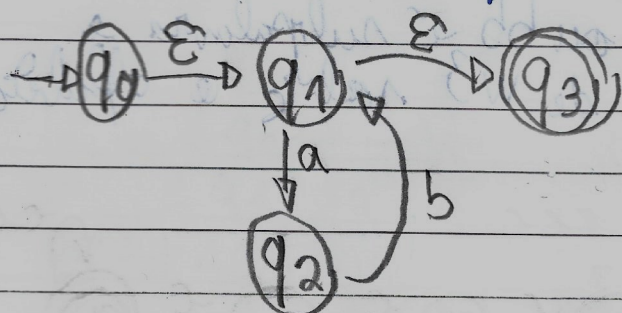 ε ε
q0 q1 q3
a
b
q2